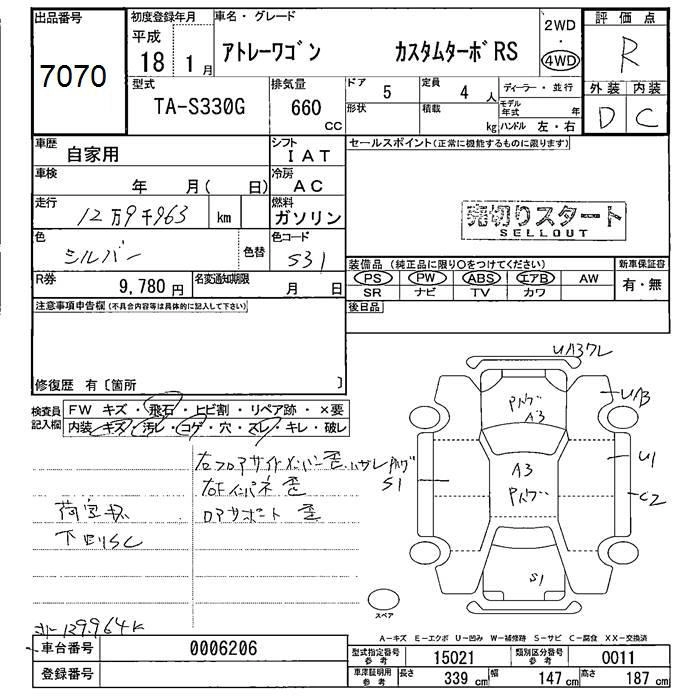 出品番号
7070
初度登録年月
平成
18 1 月
車名・グレード
アトレーワゴン カスタムターボRS
2WD
・
4WD
評価点
R
外装 内装
D C
型式
TA-S330G
排気量
660
cc
ドア
5
定員
4 人
形状
積載
kg
ディーラー・並行
モデル年式 年
ハンドル 左・右
車歴
自家用
シフト
IAT
車検
年 月( 日)
冷房
AC
走行
12万9千963 km
燃料
ガソリン
色
シルバー
色替
色コード
S31
R券
9,780 円
名変通知期限
月 日
セールスポイント(正常に機能するものに限ります)
売切りスタート
SELLOUT
装備品(純正品に限り○をつけてください)
PS PW ABS エアB AW
SR ナビ TV カワ
新車保証書
有・無
後日品
注意事項申告欄(不具合内容等は具体的に記入して下さい)
修復歴 有〔箇所 〕
検査員記入欄
FW キズ・飛石・ヒビ割・リペア跡・×要
内装・キズ・汚レ・コゲ・穴・スレ・キレ・破レ
右フロアサイドメンバー歪
右Fインパネ歪
ロアサポート歪
下回りSC
S1
A3
A3
U1
C2
S1
スペア
129,964K
A-キズ E-エクボ U-凹み W-補修跡 S-サビ C-腐食 XX-交換済
車台番号
0006206
登録番号
型式指定番号 参考
15021
類別区分番号 参考
0011
車庫証明用 参考
長さ 339 cm 幅 147 cm 高さ 187 cm